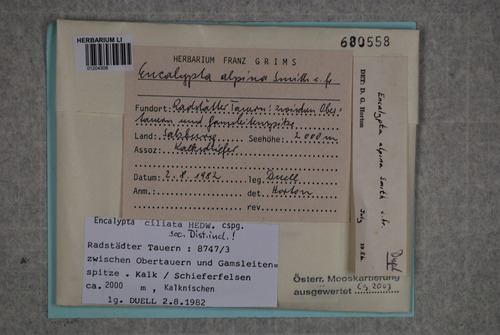 HERBARIUM LI
01204308
680558
HERBARIUM FRANZ GRIMS
Encalypta alpina Smith c. fr.
Fundort: Radstädter Tauern: zwischen Ober-
tauern und Gamsleitenspitze
Land: Salzburg Seehöhe: 2000 m
Assoz: Kalkschiefer
Datum: 2.8.1982 leg. Duell
Anm.: det. Horton
rev.
DET: D. G. Horton
Encalypta alpina Smith c. fr.
July
Dupl
Encalypta ciliata HEDW. cspg.
soc. Dist. incl.!
Radstädter Tauern : 8747/3
zwischen Obertauern und Gamsleiten=
spitze . Kalk / Schieferfelsen
ca. 2000 m , Kalknischen
lg. DUELL 2.8.1982
Österr. Mooskartierung
ausgewertet